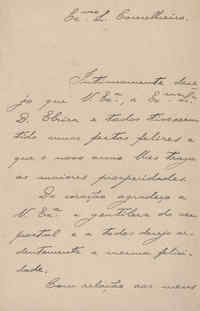 Ex.mo Sr. Conselheiro.
Intimamente dese
jo que V. Ex.a, a Ex.ma Sr.a
D. Elvira e todos tivessem
tido umas festas felizes e
que o novo anno lhes traga
as maiores prosperidades.
De coração agradeço a
V. Ex.a a gentileza do seu
postal e a todos desejo ar
dentemente a mesma felici
dade.
Com relação aos meus